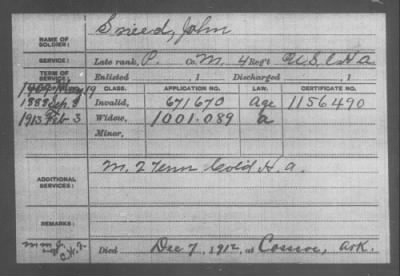 NAME OF SOLDIER: Sneed, John
SERVICE: Late rank, P. Co. M, 4 Reg't U.S.C.H.A
TERM OF SERVICE: Enlisted , 1 Discharged , 1
CLASS. APPLICATION NO. LAW. CERTIFICATE NO.
1888 Sep. Invalid, 671670 Age 1156490
1913 Feb 3 Widow, 1001.089 a
Minor,
ADDITIONAL SERVICES: M. 2 Tenn Cold H. A.
REMARKS:
Died Dec 7, 1912, at Ark.